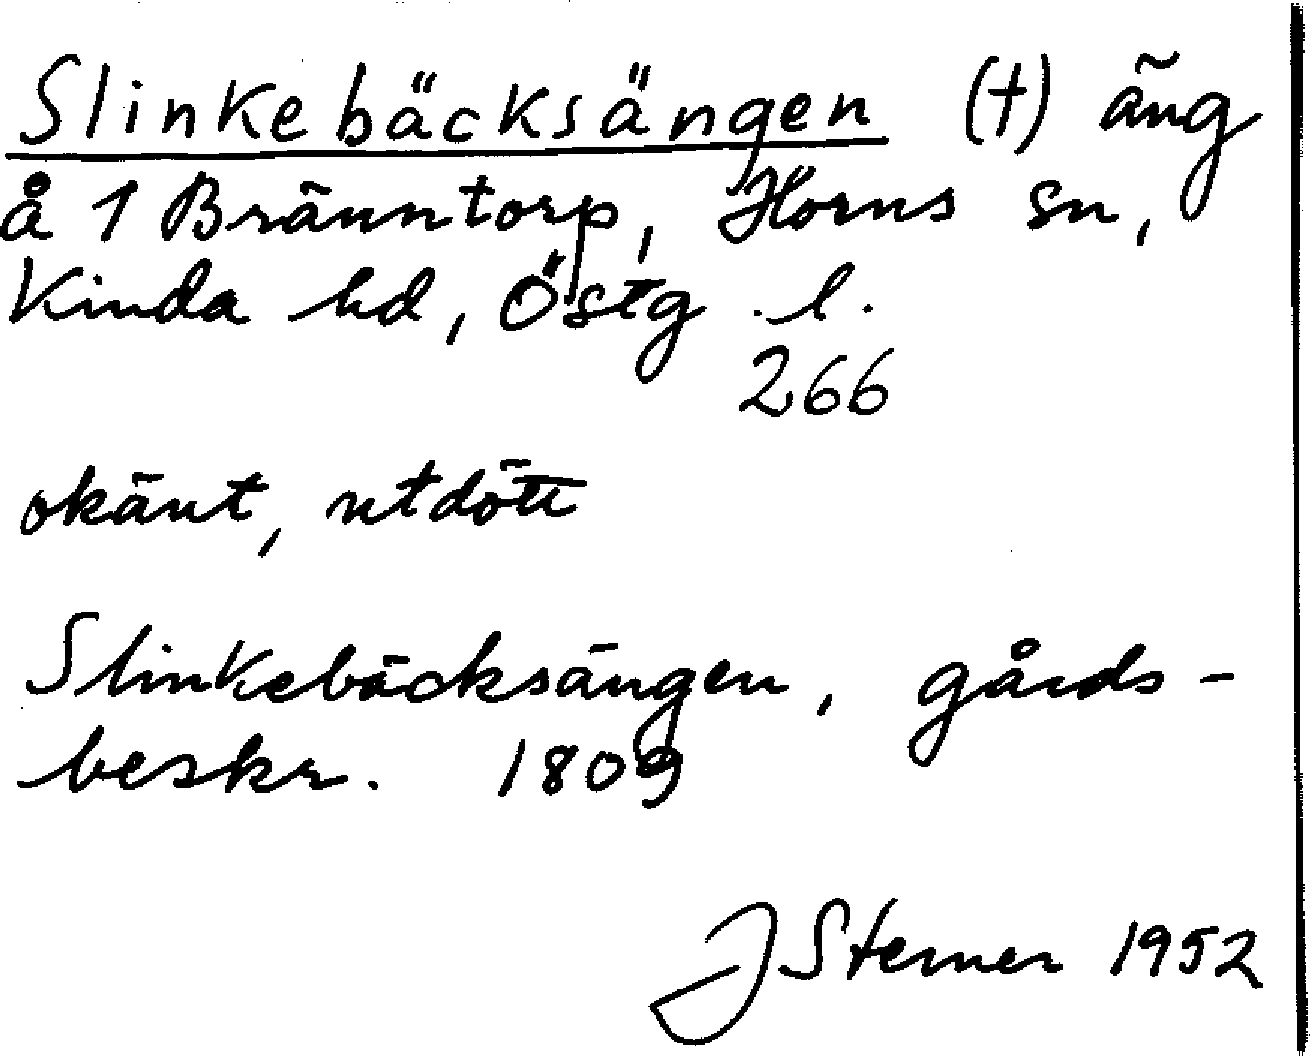 Slinkebäcksängen (†) äng
å 1 Bränntorp, Horns sn,
Kinda hd, Östg. l.
266
okänt, utdött
Slinkebäcksängen, gårds-
beskr. 1809
J Sterner 1952